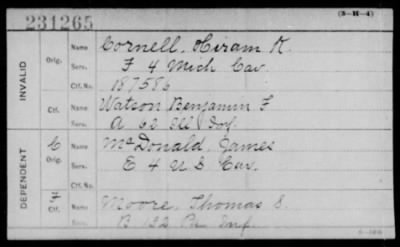 (3-H-4)
231265
INVALID
Orig.
Name Cornell, Hiram K.
Serv. F 4 Mich Cav.
Ctf. No. 187586
Ctf.
Name Watson Benjamin F
Serv. A 62 Ill Inf.
DEPENDENT
C
Orig.
Name McDonald, James
Serv. E 4 U S Cav.
Ctf. No.
Ctf.
Name Moore, Thomas S.
Serv. B 132 Pa Inf.